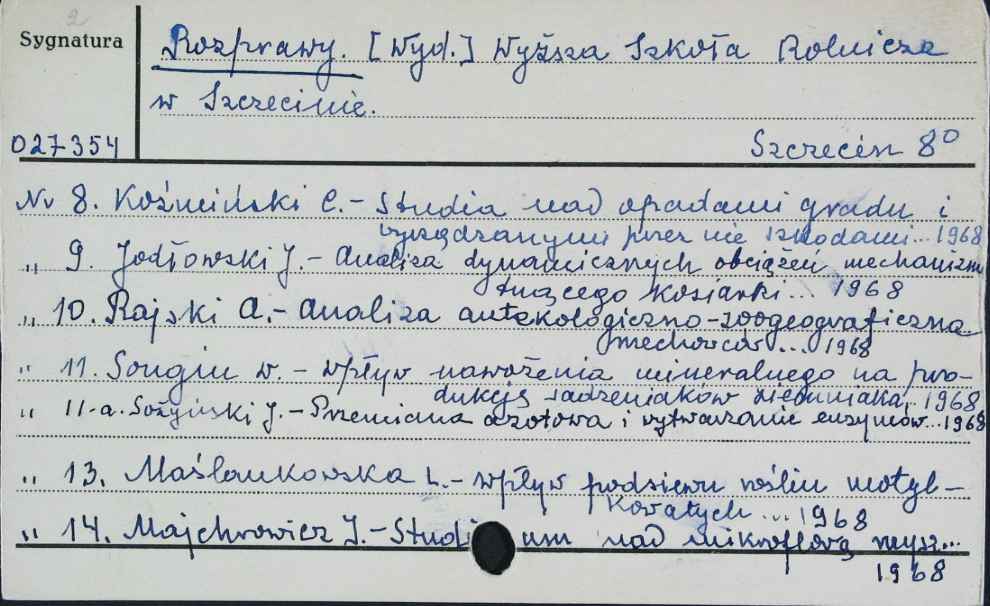 2
Sygnatura
Rozprawy. [Wyd.] Wyższa Szkoła Rolnicza
w Szczecinie.
027354
Szczecin 8°
Nr 8. Koźmiński C. – Studia nad opadami gradu i
wyrządzanymi przez nie szkodami... 1968
„ 9. Jodłowski J. – Analiza dynamicznych obciążeń mechanizm
tnącego kosiarki... 1968
„ 10. Rajski A. – Analiza autekologiczno-zoogeograficzna
mechowców... 1968
„ 11. Songin W. – Wpływ nawożenia mineralnego na pro-
dukcję sadzeniaków ziemniaka... 1968
„ 11-a. Sożyński J. – Przemiana azotowa i wytwarzanie enzymów... 1968
„ 13. Maślankowska L. – Wpływ podsiewu roślin motyl-
kowatych ... 1968
„ 14. Majchrowicz J. – Studium nad mikroflorą mysz...
1968